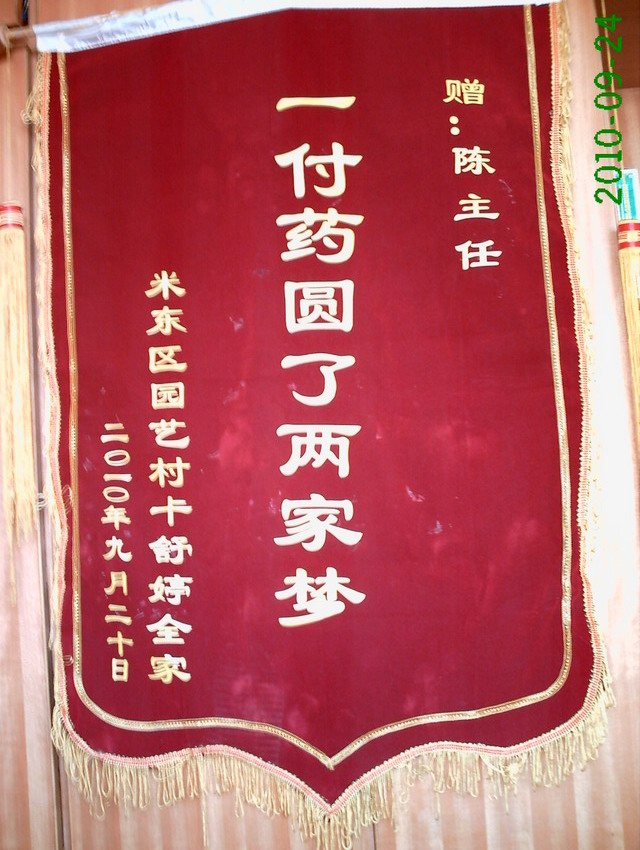 赠：陈主任
一付药圆了两家梦
米东区园艺村卡舒婷全家
二〇一〇年九月二十日
2010-09-24